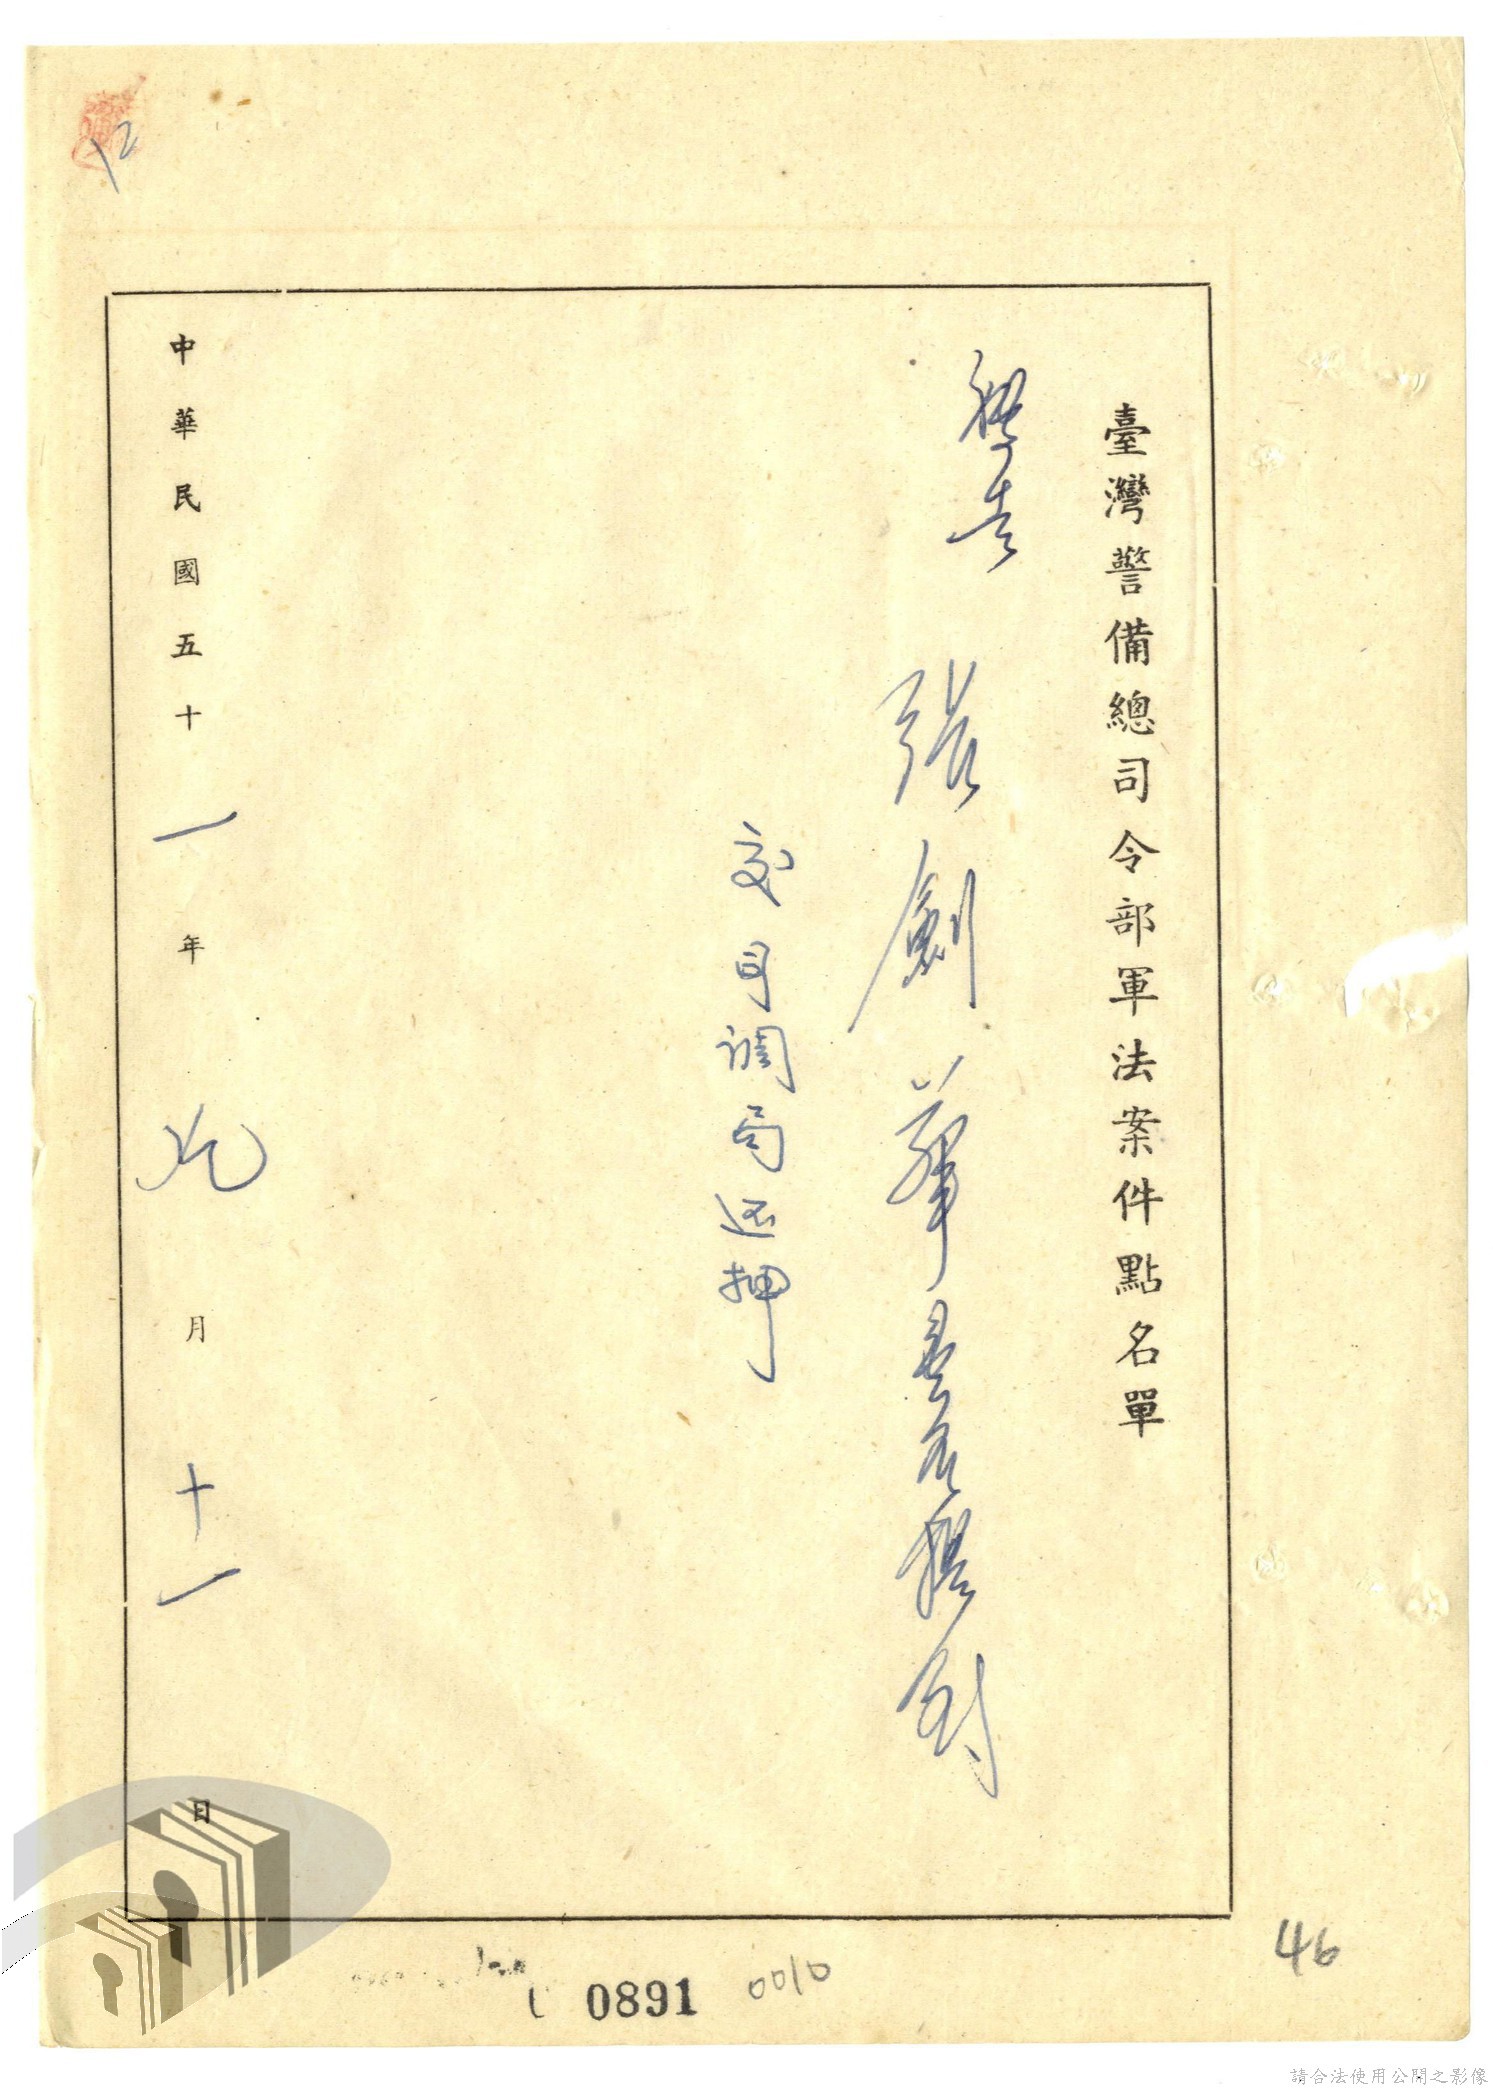 臺灣警備總司令部軍法案件點名單
被告 張劍華 未名提到
交自調局還押
中華民國五十一年九月十一日
12
46
0891
0010
請合法使用公開之影像